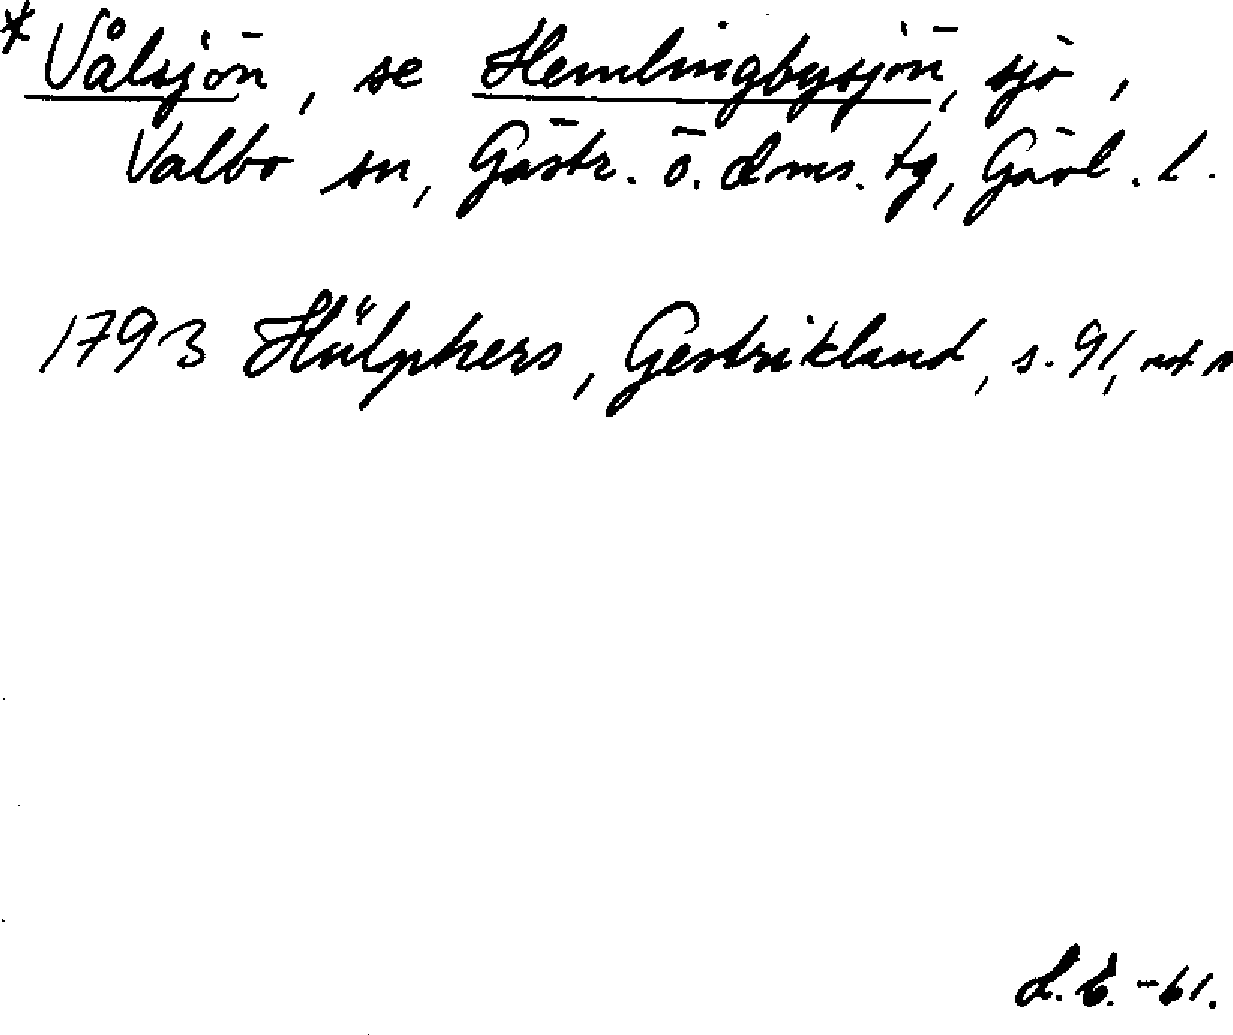 * Vålsjön, se Hemlingbysjön, sjö,
Valbo sn, Gästr. ö. dms. tg, Gävl. l.
1793 Hülphers, Gestrikland, s. 91, not n
-61.